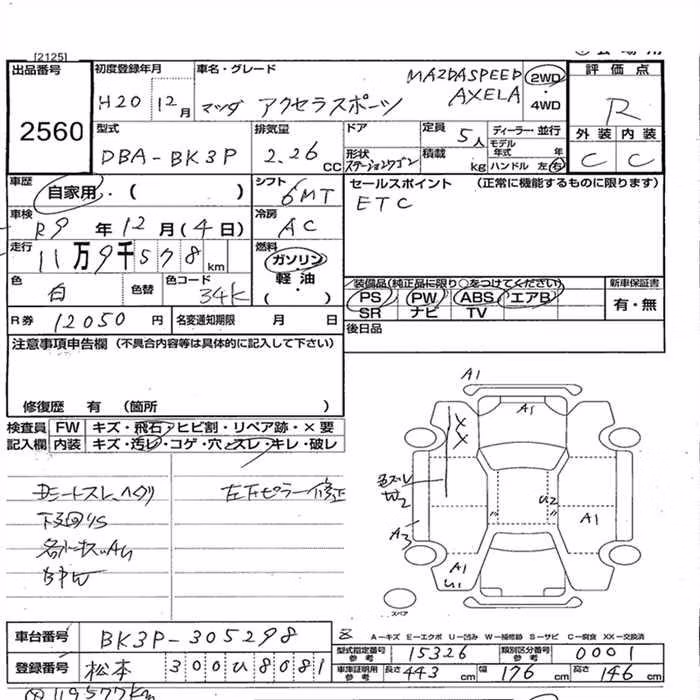 [2125]
出品番号 初度登録年月 車名・グレード MAZDASPEED 2WD 評価点
2560 H20 12月 マツダ アクセラスポーツ AXELA ・4WD R
型式 排気量 ドア 定員 5人 ディーラー・並行 外装 内装
DBA-BK3P 2.26 CC 形状 ステーションワゴン 積載 kg モデル年式 年 ハンドル 左・右 C C
車歴 自家用・( ) シフト 6MT セールスポイント (正常に機能するものに限ります)
車検 R9年 12月(4日) 冷房 AC ETC
走行 11万9千578km 燃料 ガソリン・軽油・( )
色 白 色替 色コード 34K
装備品(純正品に限り○をつけてください) 新車保証書
PS PW ABS エアB 有・無
SR ナビ TV
R券 12050円 名変通知期限 月 日 後日品
注意事項申告欄 (不具合内容等は具体的に記入して下さい)
修復歴 有 (箇所 )
検査員 FW キズ・飛石・ヒビ割・リペア跡・×要
記入欄 内装 キズ・汚レ・コゲ・穴・スレ・キレ・破レ
左下ピラー修正
下回りS
A1
A1
X
X
W2
U2
A3
A1
A1
U1
スペア
A-キズ E-エクボ U-凹み W-補修跡 S-サビ C-腐食 XX-交換済
車台番号 BK3P-305298
型式指定番号 参考 15326 類別区分番号 参考 0001
登録番号 松本 300 ひ 8081
車庫証明用 参考 長さ 443 cm 幅 176 cm 高さ 146 cm
119577km